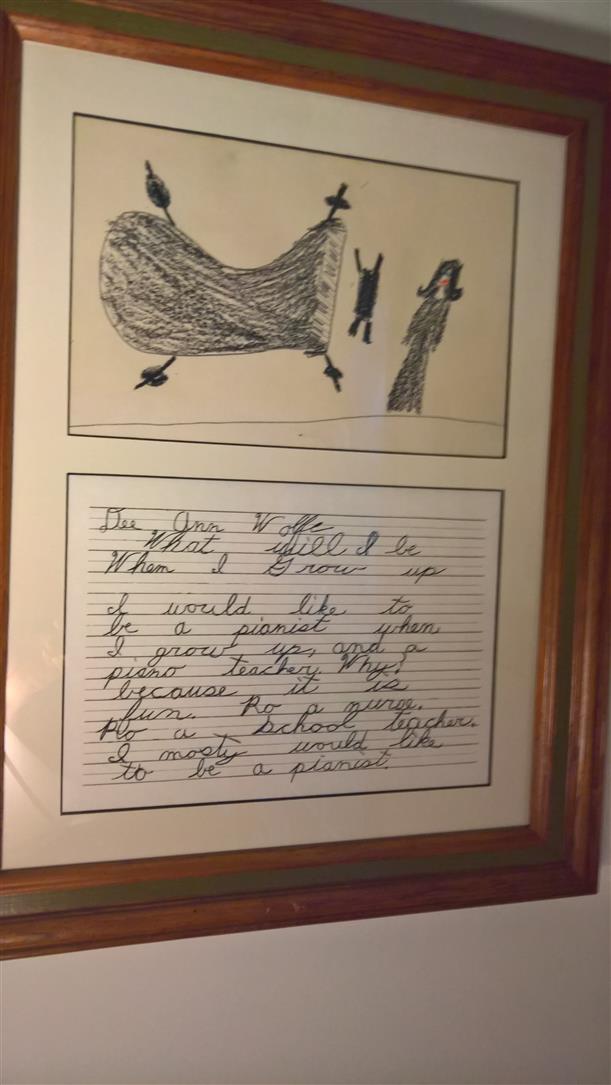 Dee Ann Wolfe
What will I be
When I Grow up
I would like to
be a pianist when
I grow up, and a
piano teacher. Why?
because it is
fun. Ro a nurse.
Ro a school teacher.
I mosty would like
to be a pianist.